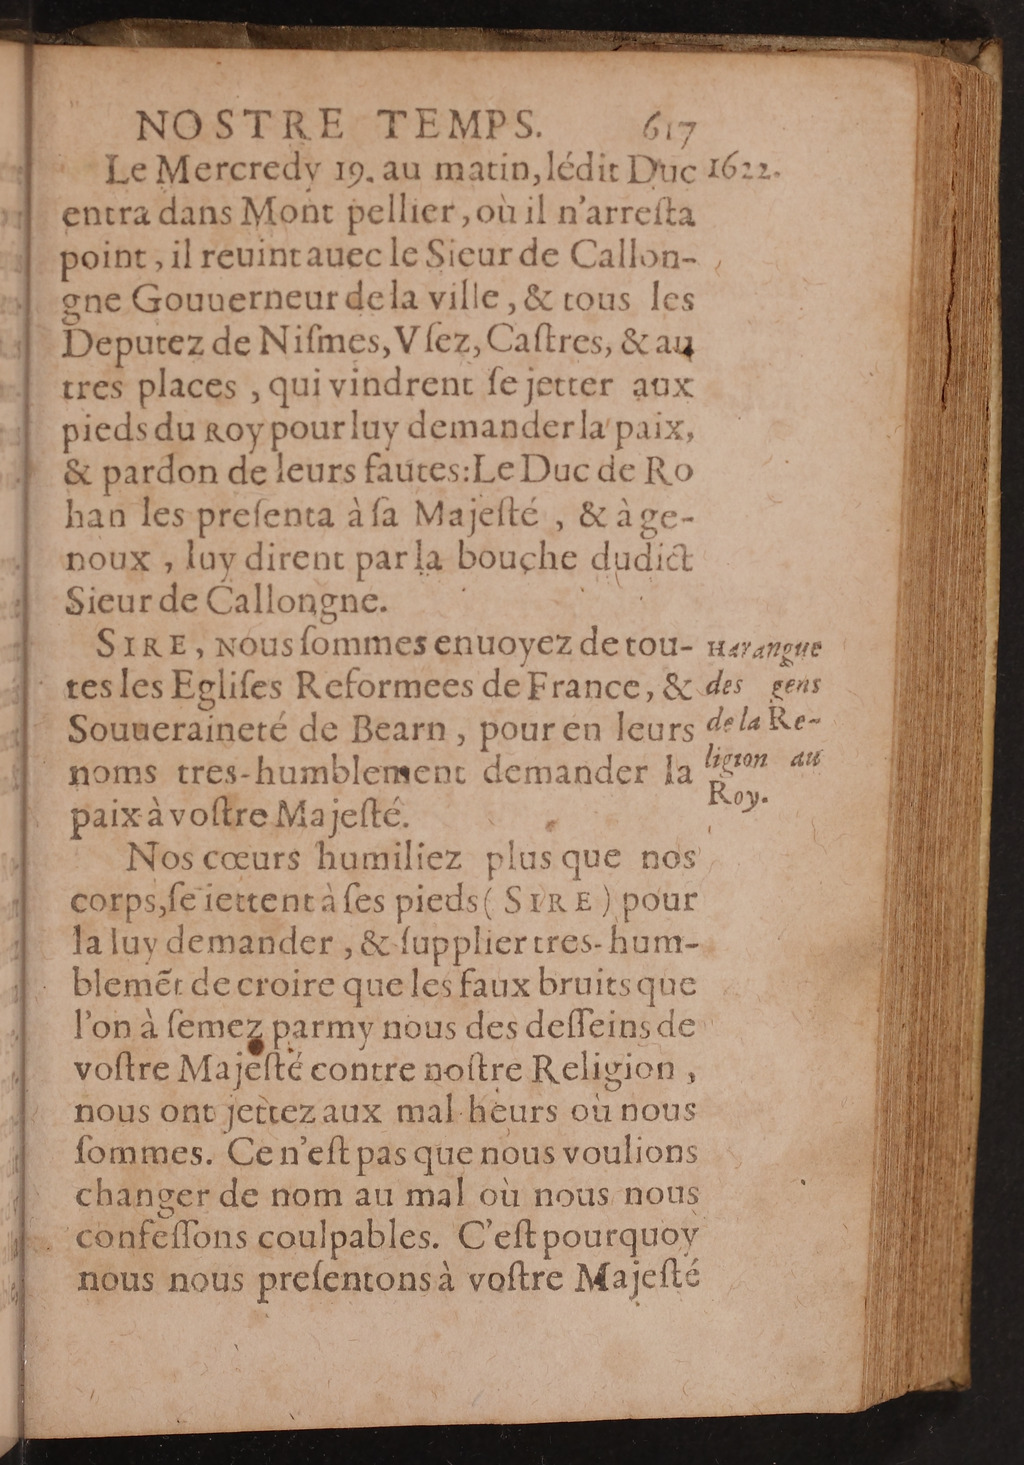 NOSTRE TEMPS. 617
Le Mercredy 19. au matin, lédit Duc 1622.
entra dans Mont pellier, où il n'arreſta
point, il reuint auec le Sieur de Callon-
gne Gouuerneur de la ville, & tous les
Deputez de Niſmes, Vſez, Caſtres, & au
tres places, qui vindrent ſe jetter aux
pieds du Roy pour luy demander la paix,
& pardon de leurs fautes: Le Duc de Ro
han les preſenta à ſa Majeſté, & à ge-
noux, luy dirent par la bouche dudict
Sieur de Callongne.
SIRE, Nous ſommes enuoyez de tou-
tes les Egliſes Reformees de France, &
Souueraineté de Bearn, pour en leurs
noms tres-humblement demander la
paix à voſtre Majeſté.
Harangue
des gens
de la Re-
ligion au
Roy.
Nos cœurs humiliez plus que nos
corps, ſe iettent à ſes pieds (SIRE) pour
la luy demander, & ſupplier tres-hum-
blemẽt de croire que les faux bruits que
l'on à ſemez parmy nous des deſſeins de
voſtre Majeſté contre noſtre Religion,
nous ont jettez aux mal-heurs où nous
ſommes. Ce n'eſt pas que nous voulions
changer de nom au mal où nous nous
confeſſons coulpables. C'eſt pourquoy
nous nous preſentons à voſtre Majeſté